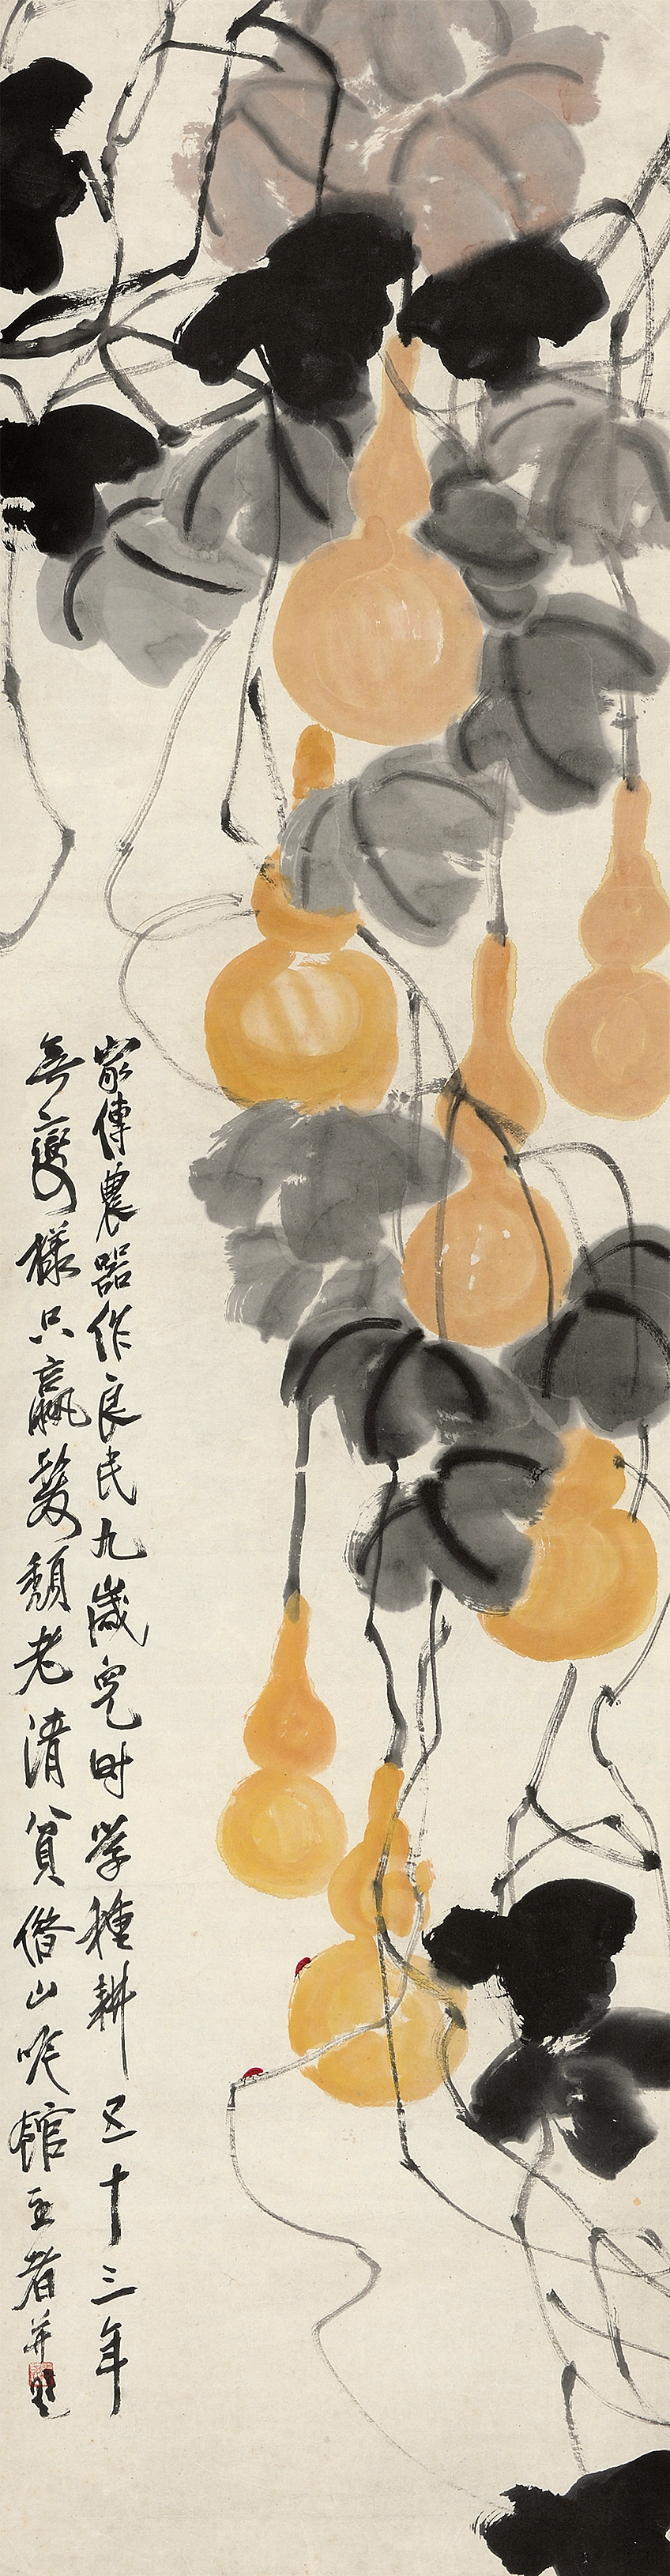 家傳農器作良民九歲兒时學種耕五十三年
無變樣只贏髮頽老清貧借山吟館主者并題